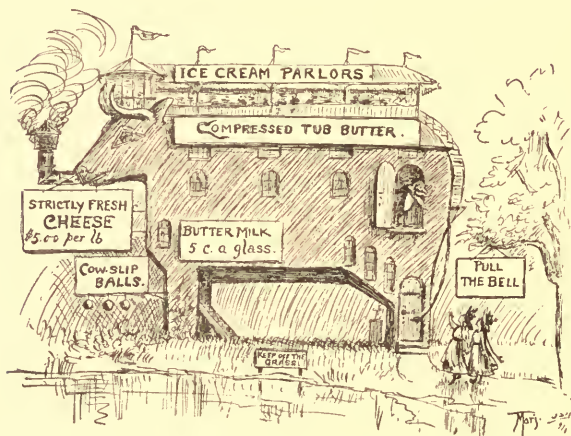 ICE CREAM PARLORS
COMPRESSED TUB BUTTER.
STRICTLY FRESH
CHEESE
$5.00 per lb
BUTTER MILK
5 c. a glass.
COW-SLIP
BALLS.
PULL
THE BELL
KEEP OFF THE
GRASS.